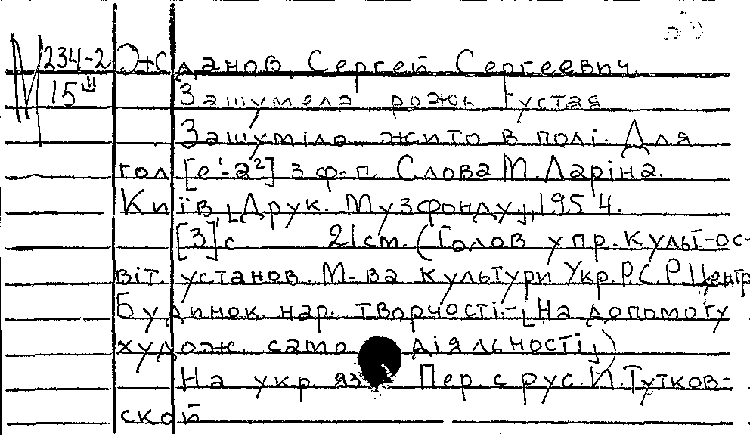 234-2 Жданов, Сергей Сергеевич
15 Зашумела рожь густая
Зашуміло жито в полі. Для
гол. [е¹-а²] з ф-п. Слова М. Ларіна.
Київ, [Друк. Музфонду], 1954.
[3] с 21 см. (Голов упр. культ-ос-
віт. установ М-ва культури Укр. РСР Центр
Будинок нар. творчості.- [На допомогу
худож. само діяльності])
На укр. яз Пер. с рус. Й. Тутков-
ской